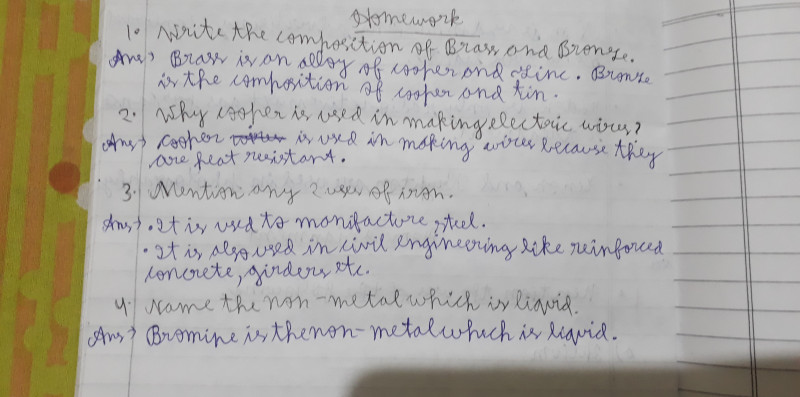 Homework
1. Write the composition of Brass and Bronze.
Ans> Brass is an alloy of cooper and Zinc. Bronze
is the composition of cooper and tin.
2. Why cooper is used in making electric wires?
Ans> cooper is used in making wires because they
are heat resistant.
3. Mention any 2 uses of iron.
Ans> • It is used to monifacture steel.
• It is also used in civil engineering like reinforced
concrete, girders etc.
4. Name the non-metal which is liquid.
Ans> Bromine is the non-metal which is liquid.